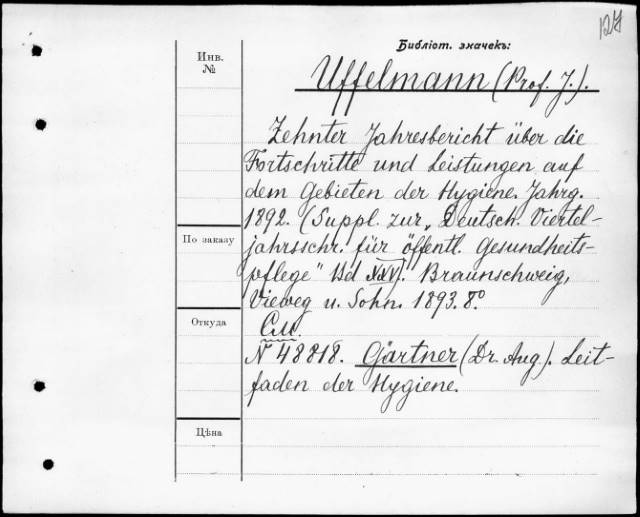 127
Библіот. значекъ:
Инв.
№
Uffelmann (Prof. J.).
Zehnter Jahresbericht über die
Fortschritte und Leistungen auf
dem Gebieten der Hygiene. Jahrg.
1892. (Suppl. zur „Deutsch. Viertel-
По заказу
jahrsschr. für öffentl. Gesundheits-
pflege" Bd XXV). Braunschweig,
Vieweg u. Sohn. 1893. 8º
Откуда
См.
№ 48818. Gärtner (Dr. Aug). Leit-
faden der Hygiene.
Цѣна